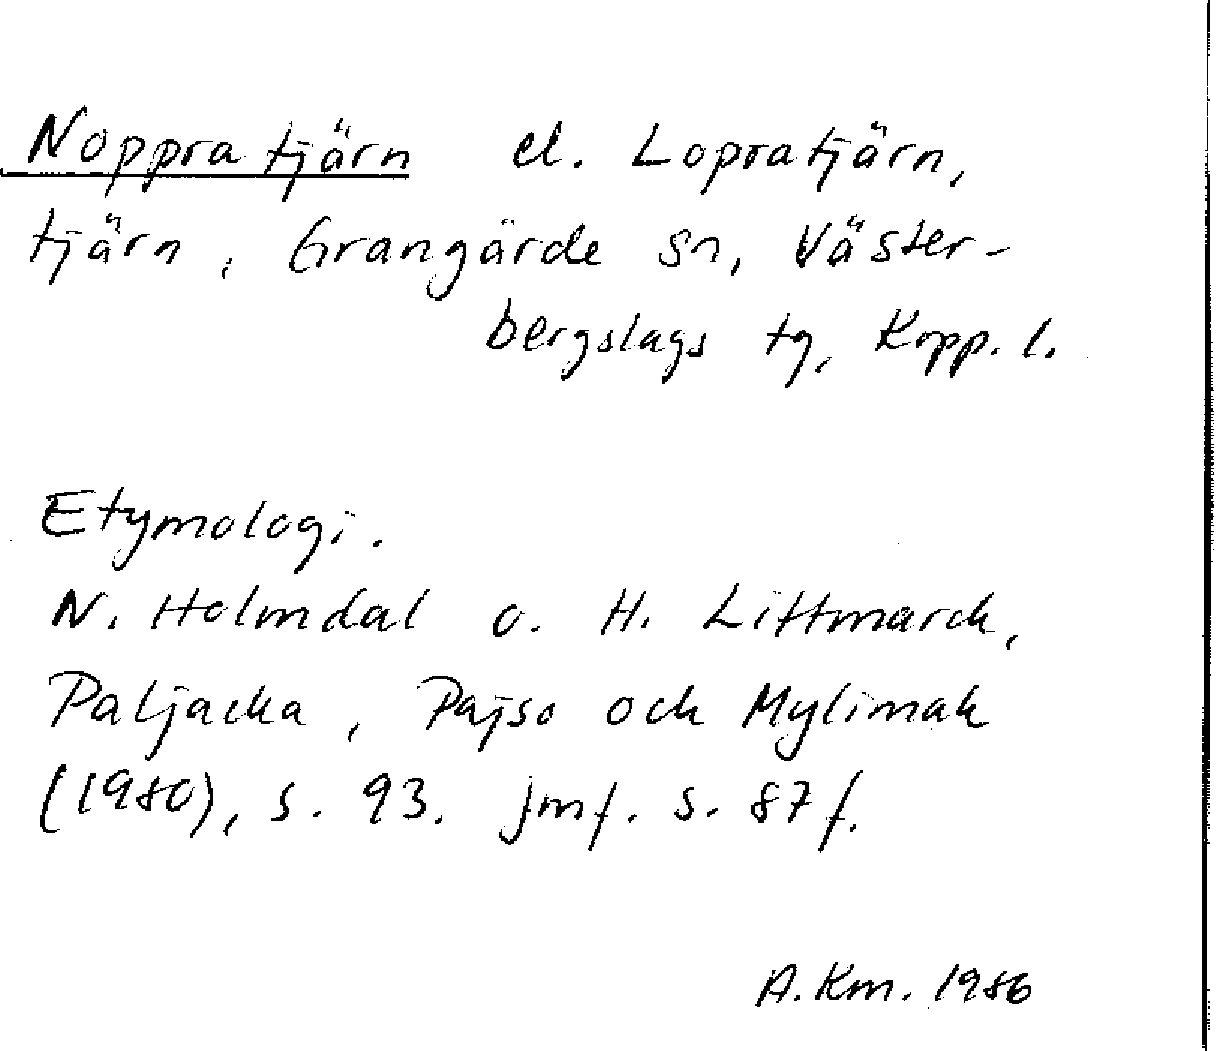 Noppratjärn el. Lopratjärn,
tjärn, Grangärde sn, Väster-
bergslags tg, Kopp. l.
Etymologi.
N. Holmdal o. H. Littmarck,
Paljacka, Pajso och Mylimak
(1980), s. 93. jmf. s. 87 f.
A. Km. 1986